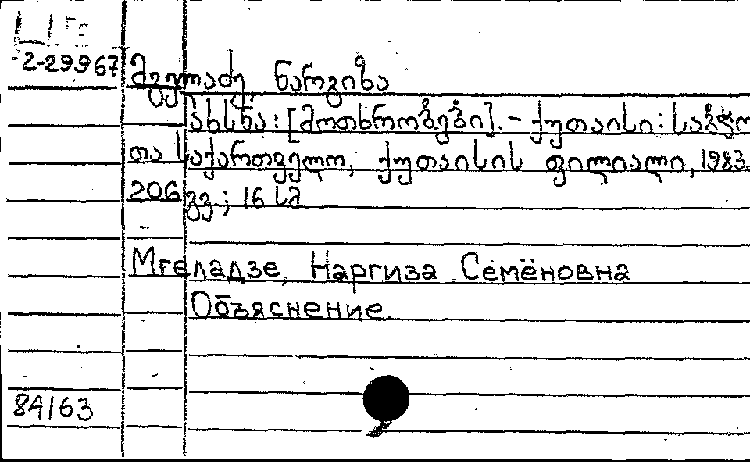 2-29967
მგელაძე, ნარგიზა
ახსნა: [მოთხრობები]. - ქუთაისი: საბჭო
თა საქართველო, ქუთაისის ფილიალი, 1983.
206 გვ.; 16 სმ
Мгеладзе, Наргиза Семёновна
Объяснение.
84163